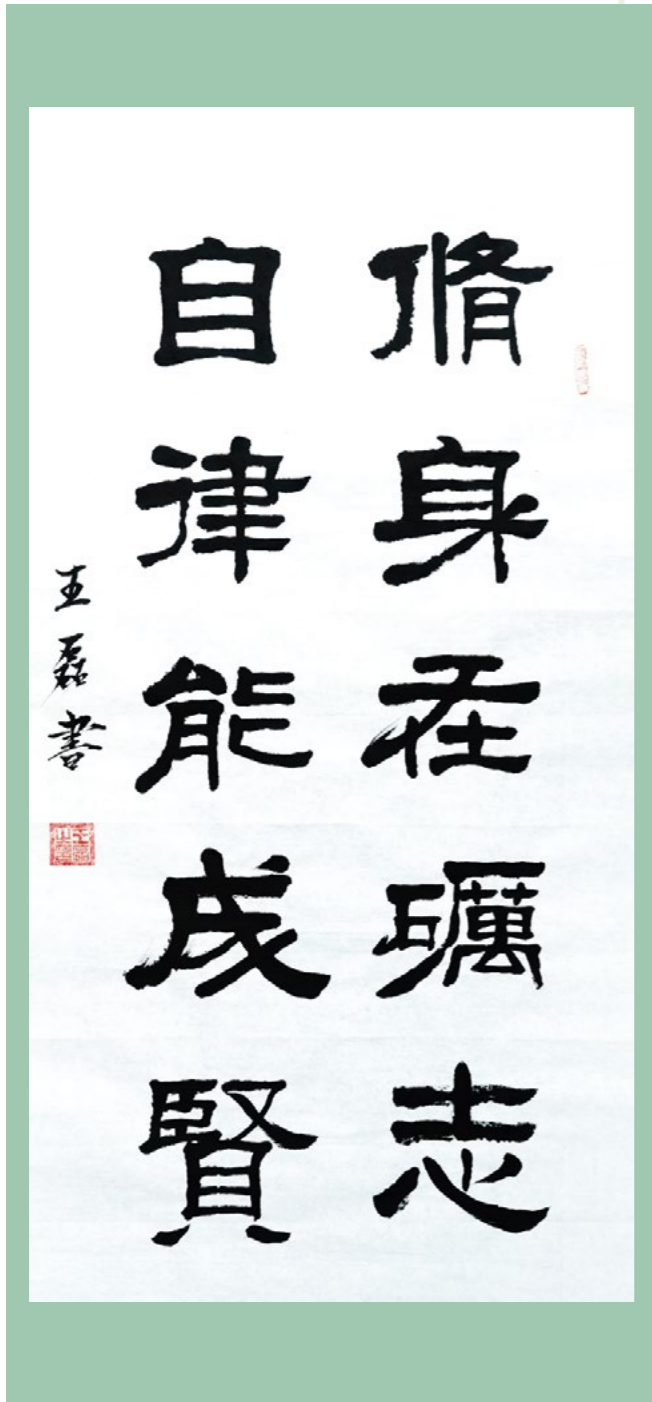 脩身在礪志
自律能成賢
王磊書